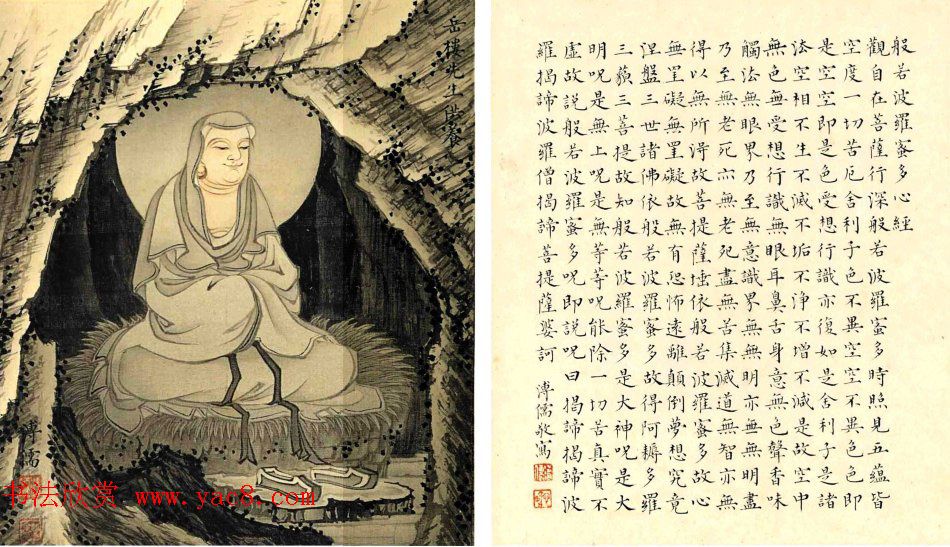 岳樓先生供養
溥儒
书法欣赏 www.yac8.com
般若波羅蜜多心經
觀自在菩薩行深般若波羅蜜多時照見五蘊皆
空度一切苦厄舍利子色不異空空不異色色即
是空空即是色受想行識亦復如是舍利子是諸
法空相不生不滅不垢不淨不增不減是故空中
無色無受想行識無眼耳鼻舌身意無色聲香味
觸法無眼界乃至無意識界無無明亦無無明盡
乃至無老死亦無老死盡無苦集滅道無智亦無
得以無所得故菩提薩埵依般若波羅蜜多故心
無罣礙無罣礙故無有恐怖遠離顛倒夢想究竟
涅盤三世諸佛依般若波羅蜜多故得阿耨多羅
三藐三菩提故知般若波羅蜜多是大神呪是大
明呪是無上呪是無等等呪能除一切苦真實不
虛故說般若波羅蜜多呪即說呪曰揭諦揭諦波
羅揭諦波羅僧揭諦菩提薩婆訶 溥儒敬寫